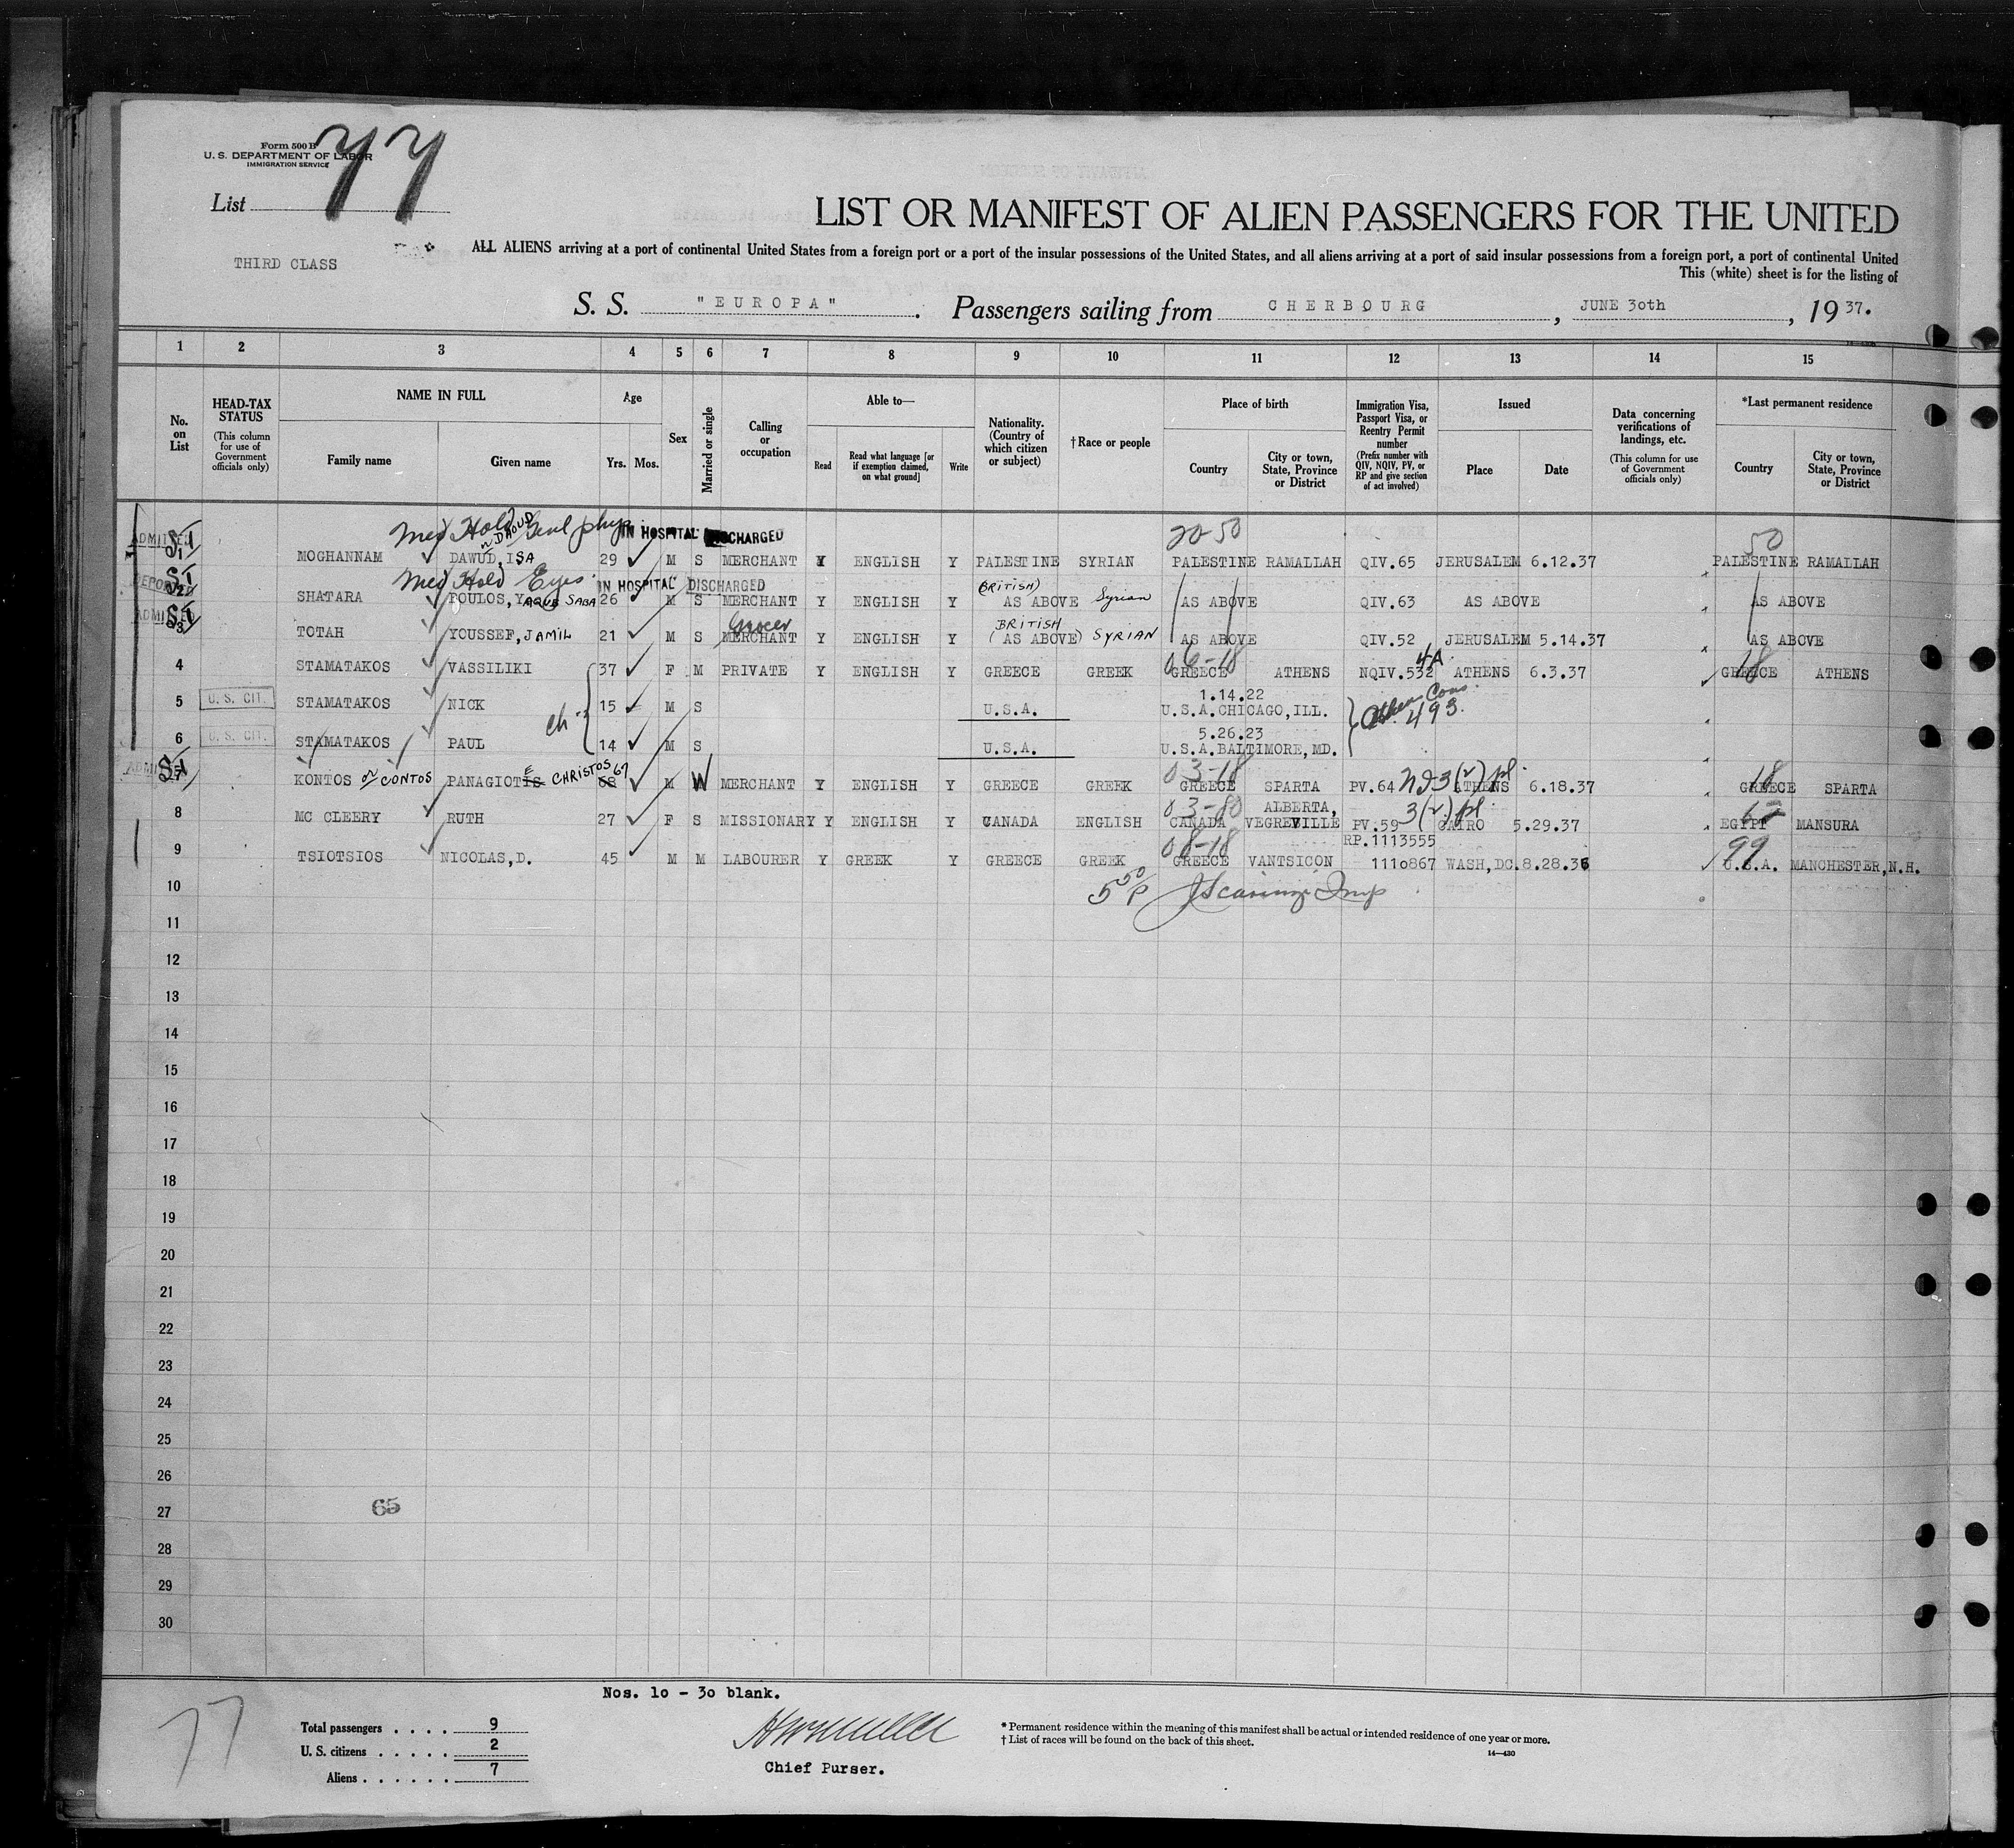 Form 500 B
U. S. DEPARTMENT OF LABOR
IMMIGRATION SERVICE
List 77
LIST OR MANIFEST OF ALIEN PASSENGERS FOR THE UNITED
ALL ALIENS arriving at a port of continental United States from a foreign port or a port of the insular possessions of the United States, and all aliens arriving at a port of said insular possessions from a foreign port, a port of continental United
THIRD CLASS
This (white) sheet is for the listing of
S. S. "EUROPA". Passengers sailing from CHERBOURG, JUNE 30th, 1937.
1 2 3 4 5 6 7 8 9 10 11 12 13 14 15
No. on List
HEAD-TAX STATUS
(This column for use of Government officials only)
NAME IN FULL
Family name
Given name
Age
Yrs. Mos.
Sex
Married or single
Calling or occupation
Able to—
Read
Read what language [or if exemption claimed, on what ground]
Write
Nationality. (Country of which citizen or subject)
†Race or people
Place of birth
Country
City or town, State, Province or District
Immigration Visa, Passport Visa, or Reentry Permit number
(Prefix number with QIV, NQIV, PV, or RP and give section of act involved)
Issued
Place
Date
Data concerning verifications of landings, etc.
(This column for use of Government officials only)
*Last permanent residence
Country
City or town, State, Province or District
Med Hold IN HOSPITAL DISCHARGED 20-50 50
ADMITTED SI 1 MOGHANNAM DAWUD, ISA or DAOUD 29 M S MERCHANT Y ENGLISH Y PALESTINE SYRIAN PALESTINE RAMALLAH QIV.65 JERUSALEM 6.12.37 PALESTINE RAMALLAH
Med Hold Eyes IN HOSPITAL DISCHARGED (BRITISH)
DEPORTED SI 2 SHATARA POULOS, YAQUB SABA 26 M S MERCHANT Y ENGLISH Y AS ABOVE Syrian AS ABOVE QIV.63 AS ABOVE AS ABOVE
Grocer BRITISH
ADMITTED SI 3 TOTAH YOUSSEF, JAMIL 21 M S MERCHANT Y ENGLISH Y (AS ABOVE) SYRIAN AS ABOVE QIV.52 JERUSALEM 5.14.37 AS ABOVE
06-18 4A 18
4 STAMATAKOS VASSILIKI 37 F M PRIVATE Y ENGLISH Y GREECE GREEK GREECE ATHENS NQIV.532 ATHENS 6.3.37 GREECE ATHENS
1.14.22
5 U. S. CIT. STAMATAKOS NICK 15 M S U.S.A. U.S.A. CHICAGO, ILL. Athen Cons. 493.
ch.
5.26.23
6 U. S. CIT. STAMATAKOS PAUL 14 M S U.S.A. U.S.A. BALTIMORE, MD.
03-18 18
ADMITTED SI 7 KONTOS or CONTOS PANAGIOTIS E CHRISTOS 68 67 M W MERCHANT Y ENGLISH Y GREECE GREEK GREECE SPARTA PV.64 3(2) pl. ATHENS 6.18.37 GREECE SPARTA
03-80 ALBERTA, 3(2) pl.
8 MC CLEERY RUTH 27 F S MISSIONARY Y ENGLISH Y CANADA ENGLISH CANADA VEGREVILLE PV.59 CAIRO 5.29.37 EGYPT MANSURA
08-18 RP.1113555 99
9 TSIOTSIOS NICOLAS, D. 45 M M LABOURER Y GREEK Y GREECE GREEK GREECE VANTSICON 1110867 WASH, DC. 8.28.36 U.S.A. MANCHESTER, N.H.
10
11
12
13
14
15
16
17
18
19
20
21
22
23
24
25
26
27
65
28
29
30
Nos. 10 - 30 blank.
77
Total passengers . . . . 9
U. S. citizens . . . . . 2
Aliens . . . . . . 7
Chief Purser.
* Permanent residence within the meaning of this manifest shall be actual or intended residence of one year or more.
† List of races will be found on the back of this sheet.
14—430